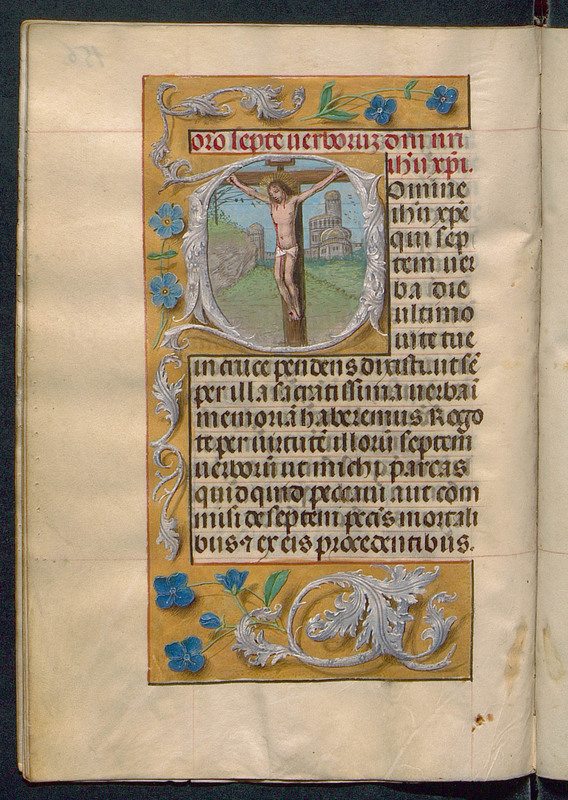 oro septē uerboruz dnī nrī
ihu xp̄i.
Omine
ihu xp̄e
qui sep
tem uer
ba die
ultimo
uite tue
in cruce pendens dixisti. ut sē
per illa sacratissima uerba ī
memoriā haberemus Rogo
te per uirtutē illorū septem
uerborū ut michi parcas
quidquid peccaui aut com
misi de septem pccīs mortali
bus ⁊ ex eis procedentibus.